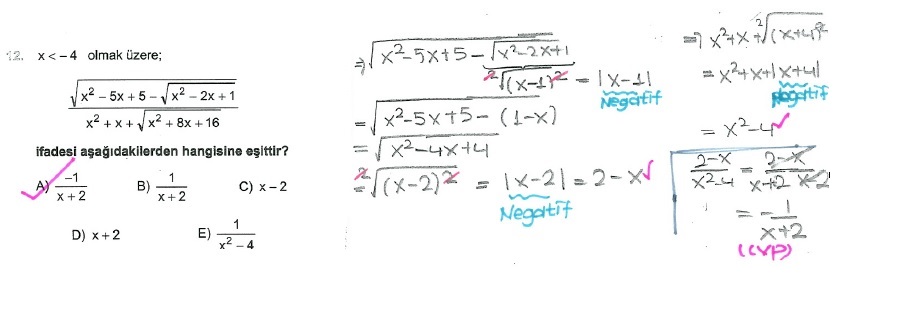 12. x < −4 olmak üzere;
√(x² − 5x + 5 − √(x² − 2x + 1))
x² + x + √(x² + 8x + 16)
ifadesi aşağıdakilerden hangisine eşittir?
A) −1/(x + 2) B) 1/(x + 2) C) x − 2
D) x + 2 E) 1/(x² − 4)
⇒ √(x²−5x+5−√(x²−2x+1))
²√(x−1)² = |x−1|
Negatif
= √(x²−5x+5−(1−x))
= √(x²−4x+4)
= ²√(x−2)² = |x−2| = 2−x
Negatif
⇒ x²+x+²√(x+4)²
= x²+x+|x+4|
Negatif
= x²−4
(2−x)/(x²−4) = (2−x)/(x+2 x−2)
= −1/(x+2)
(CVP)